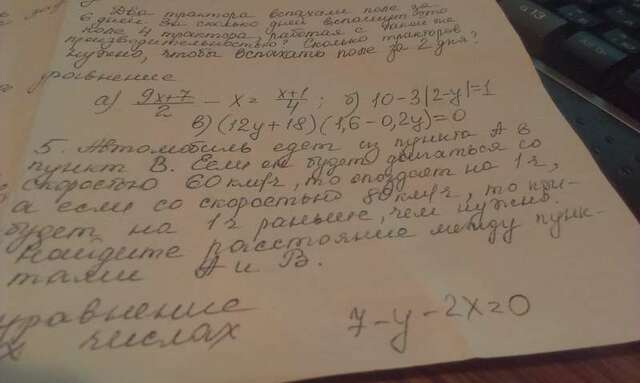 Два трактора вспахали поле за
6 дней. За сколько дней вспашут это
поле 4 трактора, работая с такой же
производительностью? Сколько тракторов
нужно, чтобы вспахать поле за 2 дня?
уравнение
а) (9x+7)/2 - x = (x+1)/4 ; б) 10-3|2-y|=1
в) (12y+18)(1,6-0,2y)=0
5. Автомобиль едет из пункта А в
пункт В. Если он будет двигаться со
скоростью 60 км/ч, то опоздает на 1 ч,
а если со скоростью 80 км/ч, то при-
будет на 1 ч раньше, чем нужно.
Найдите расстояние между пунк-
тами А и В.
уравнение
х числах 7-y-2x=0